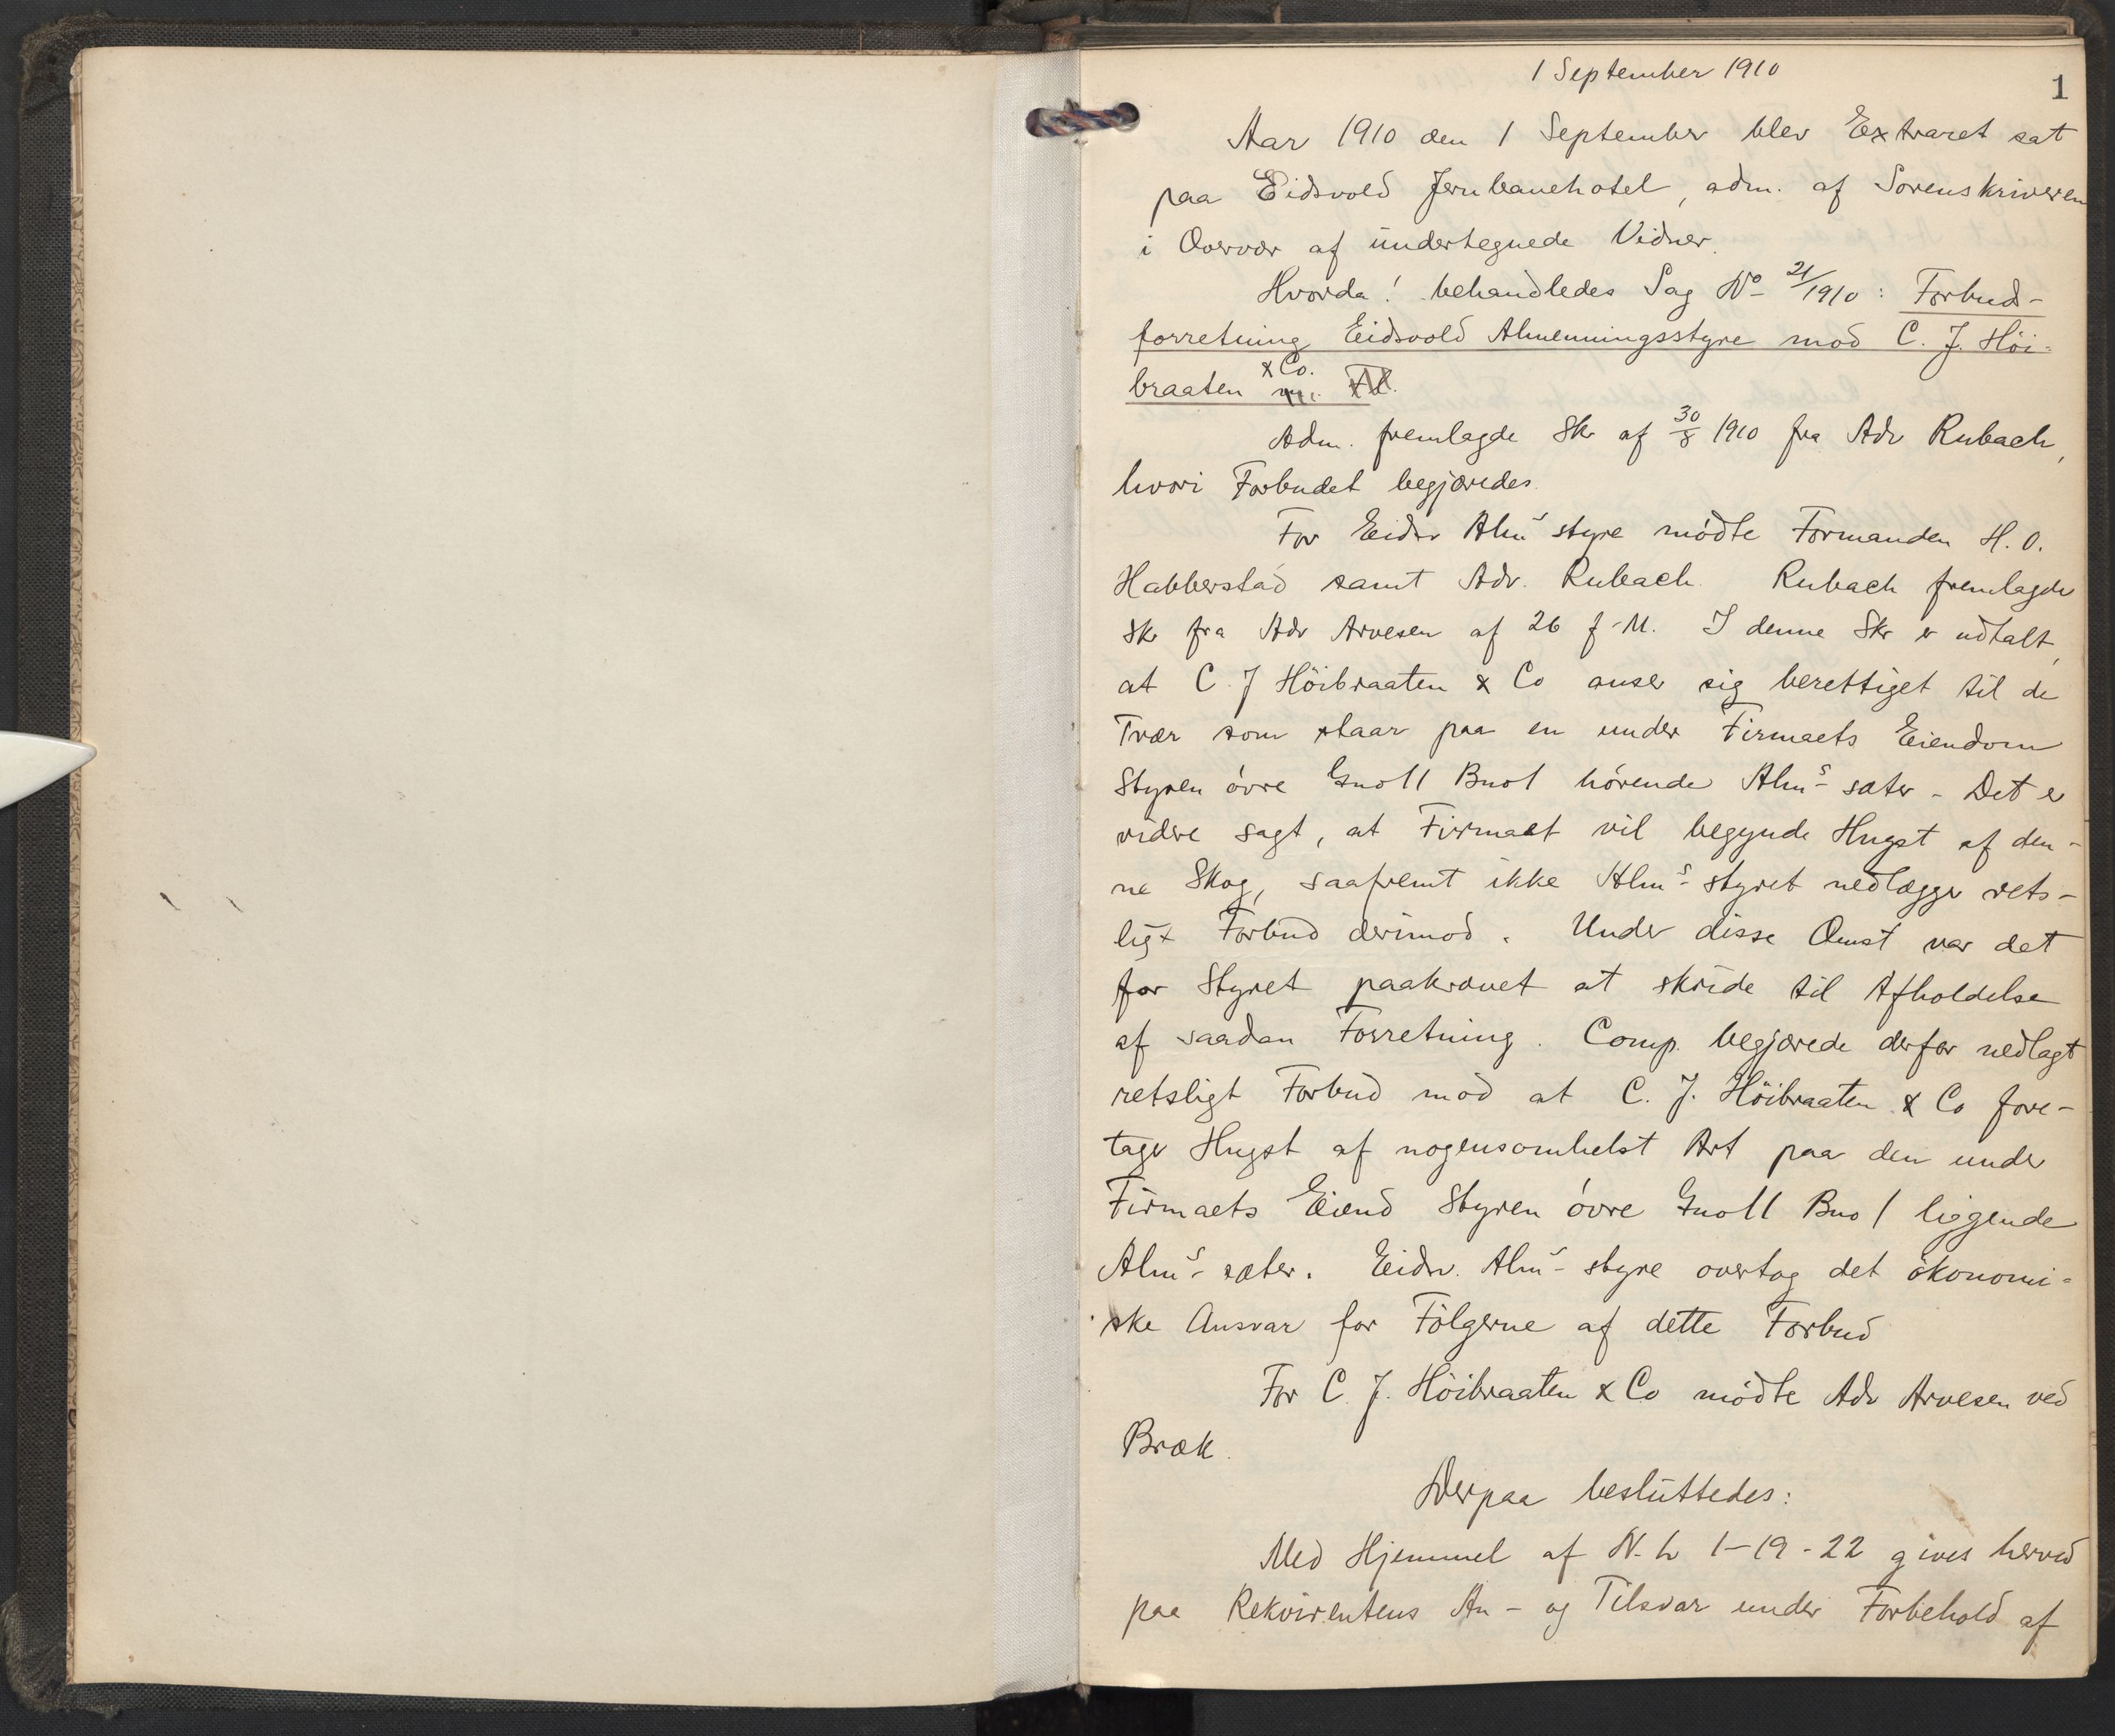 1 September 1910
1
Aar 1910 den 1 September blev Extraret sat
paa Eidsvold Jernbanehotel, adm. af Sorenskriveren
i Overvær af undertegnede Vidner.
Hvorda! behandledes Sag No 21/1910: Forbud-
forretning Eidsvold Almenningsstyre mod C. J. Höi-
braaten & Co.
Adm. fremlagde Skr af 30/8 1910 fra Adv Rubach,
hvori Forbudet begjæredes.
For Eidsv Alms styre mödte Formanden H. O.
Habberstad samt Adv. Rubach. Rubach fremlagde
Skr fra Adv Arvesen af 26 f. M. I denne Skr er udtalt,
at C. J Höibraaten & Co anser sig berettiget til de
Trær som staar paa en under Firmaets Eiendom
Styren övre Gno 11 Bno 1 hörende Alms-sæter - Det er
videre sagt, at Firmaet vil begynde Hugst af den-
ne Skog, saafremt ikke Alms-styret nedlægger rets-
ligt Forbud derimod. Under disse Omst var det
for Styret paakrævet at skride til Afholdelse
af saadan Forretning. Comp. begjærede derfor nedlagt
retsligt Forbud mod at C. J. Höibraaten & Co fore-
tager Hugst af nogensomhelst Art paa den under
Firmaets Eiend Styren övre Gno 11 Bno 1 liggende
Alms-sæter. Eidsv. Alms-styre overtog det ökonomi-
ske Ansvar for Fölgerne af dette Forbud
For C. J. Höibraaten & Co mödte Adv Arvesen ved
Bræk.
Derpaa besluttedes:
Med Hjemmel af N. L 1-19-22 gives herved
paa Rekvirentens An- og Tilsvar under Forbehold af